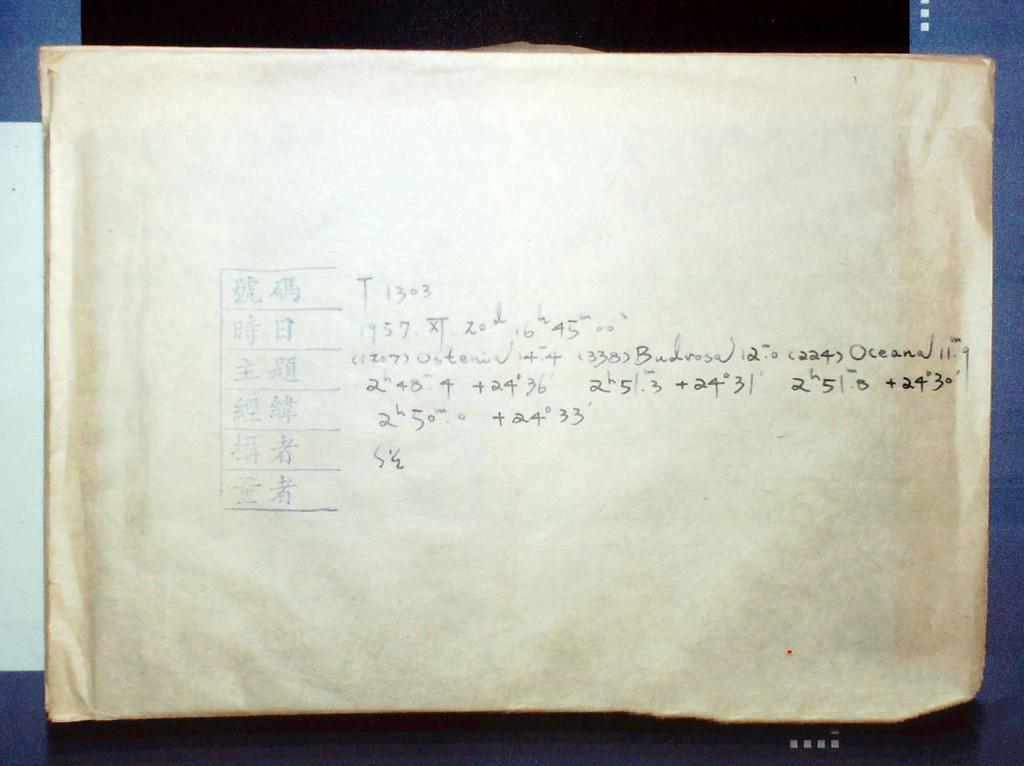 號碼 T 1303
時日 1957. XI. 20ᵈ 16ʰ 45ᵐ 00ˢ
主題 (1207) Ostenia 14ᵐ.4 (338) Budrosa 12ᵐ.0 (224) Oceana 11ᵐ.9
2ʰ 48ᵐ.4 +24° 36′ 2ʰ 51ᵐ.3 +24° 31′ 2ʰ 51ᵐ.8 +24° 30′
經緯 2ʰ 50ᵐ.0 +24° 33′
攝者
量者